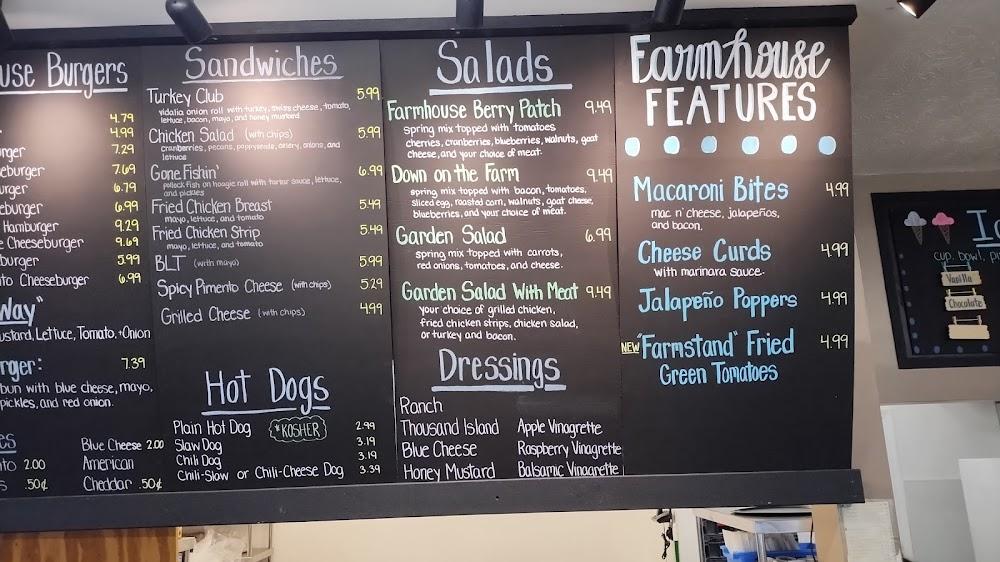 use Burgers
4.79
4.99
rger 7.29
eburger 7.69
urger 6.79
eburger 6.99
Hamburger 9.29
e Cheeseburger 9.69
burger 5.99
nto Cheeseburger 6.99
Way"
ustard, Lettuce, Tomato, +Onion
rger: 7.39
bun with blue cheese, mayo,
pickles, and red onion.
es
Blue Cheese 2.00
nto 2.00 American
s .50¢ Cheddar .50¢
Sandwiches
Turkey Club 5.99
vidalia onion roll with turkey, swiss cheese, tomato,
lettuce, bacon, mayo, and honey mustard
Chicken Salad (with chips) 5.99
cranberries, pecans, poppyseeds, celery, onions, and
lettuce
Gone Fishin' 6.99
pollock fish on hoagie roll with tartar sauce, lettuce,
and pickles
Fried Chicken Breast 5.49
mayo, lettuce, and tomato
Fried Chicken Strip 5.49
mayo, lettuce, and tomato
BLT (with mayo) 5.99
Spicy Pimento Cheese (with chips) 5.29
Grilled Cheese (with chips) 4.99
Hot Dogs
Plain Hot Dog *KOSHER 2.99
Slaw Dog 3.19
Chili Dog 3.19
Chili-Slaw or Chili-Cheese Dog 3.39
Salads
Farmhouse Berry Patch 9.49
spring mix topped with tomatoes
cherries, cranberries, blueberries, walnuts, goat
cheese, and your choice of meat.
Down on the Farm 9.49
spring mix topped with bacon, tomatoes,
sliced egg, roasted corn, walnuts, goat cheese,
blueberries, and your choice of meat.
Garden Salad 6.99
spring mix topped with carrots,
red onions, tomatoes, and cheese.
Garden Salad With Meat 9.49
your choice of grilled chicken,
fried chicken strips, chicken salad,
or turkey and bacon.
Dressings
Ranch
Thousand Island Apple Vinagrette
Blue Cheese Raspberry Vinagrette
Honey Mustard Balsamic Vinagrette
Farmhouse
FEATURES
Macaroni Bites 4.99
mac n' cheese, jalapeños,
and bacon.
Cheese Curds 4.99
with marinara sauce.
Jalapeño Poppers 4.99
NEW "Farmstand" Fried 4.99
Green Tomatoes
cup, bowl, pi
Vanilla
Chocolate